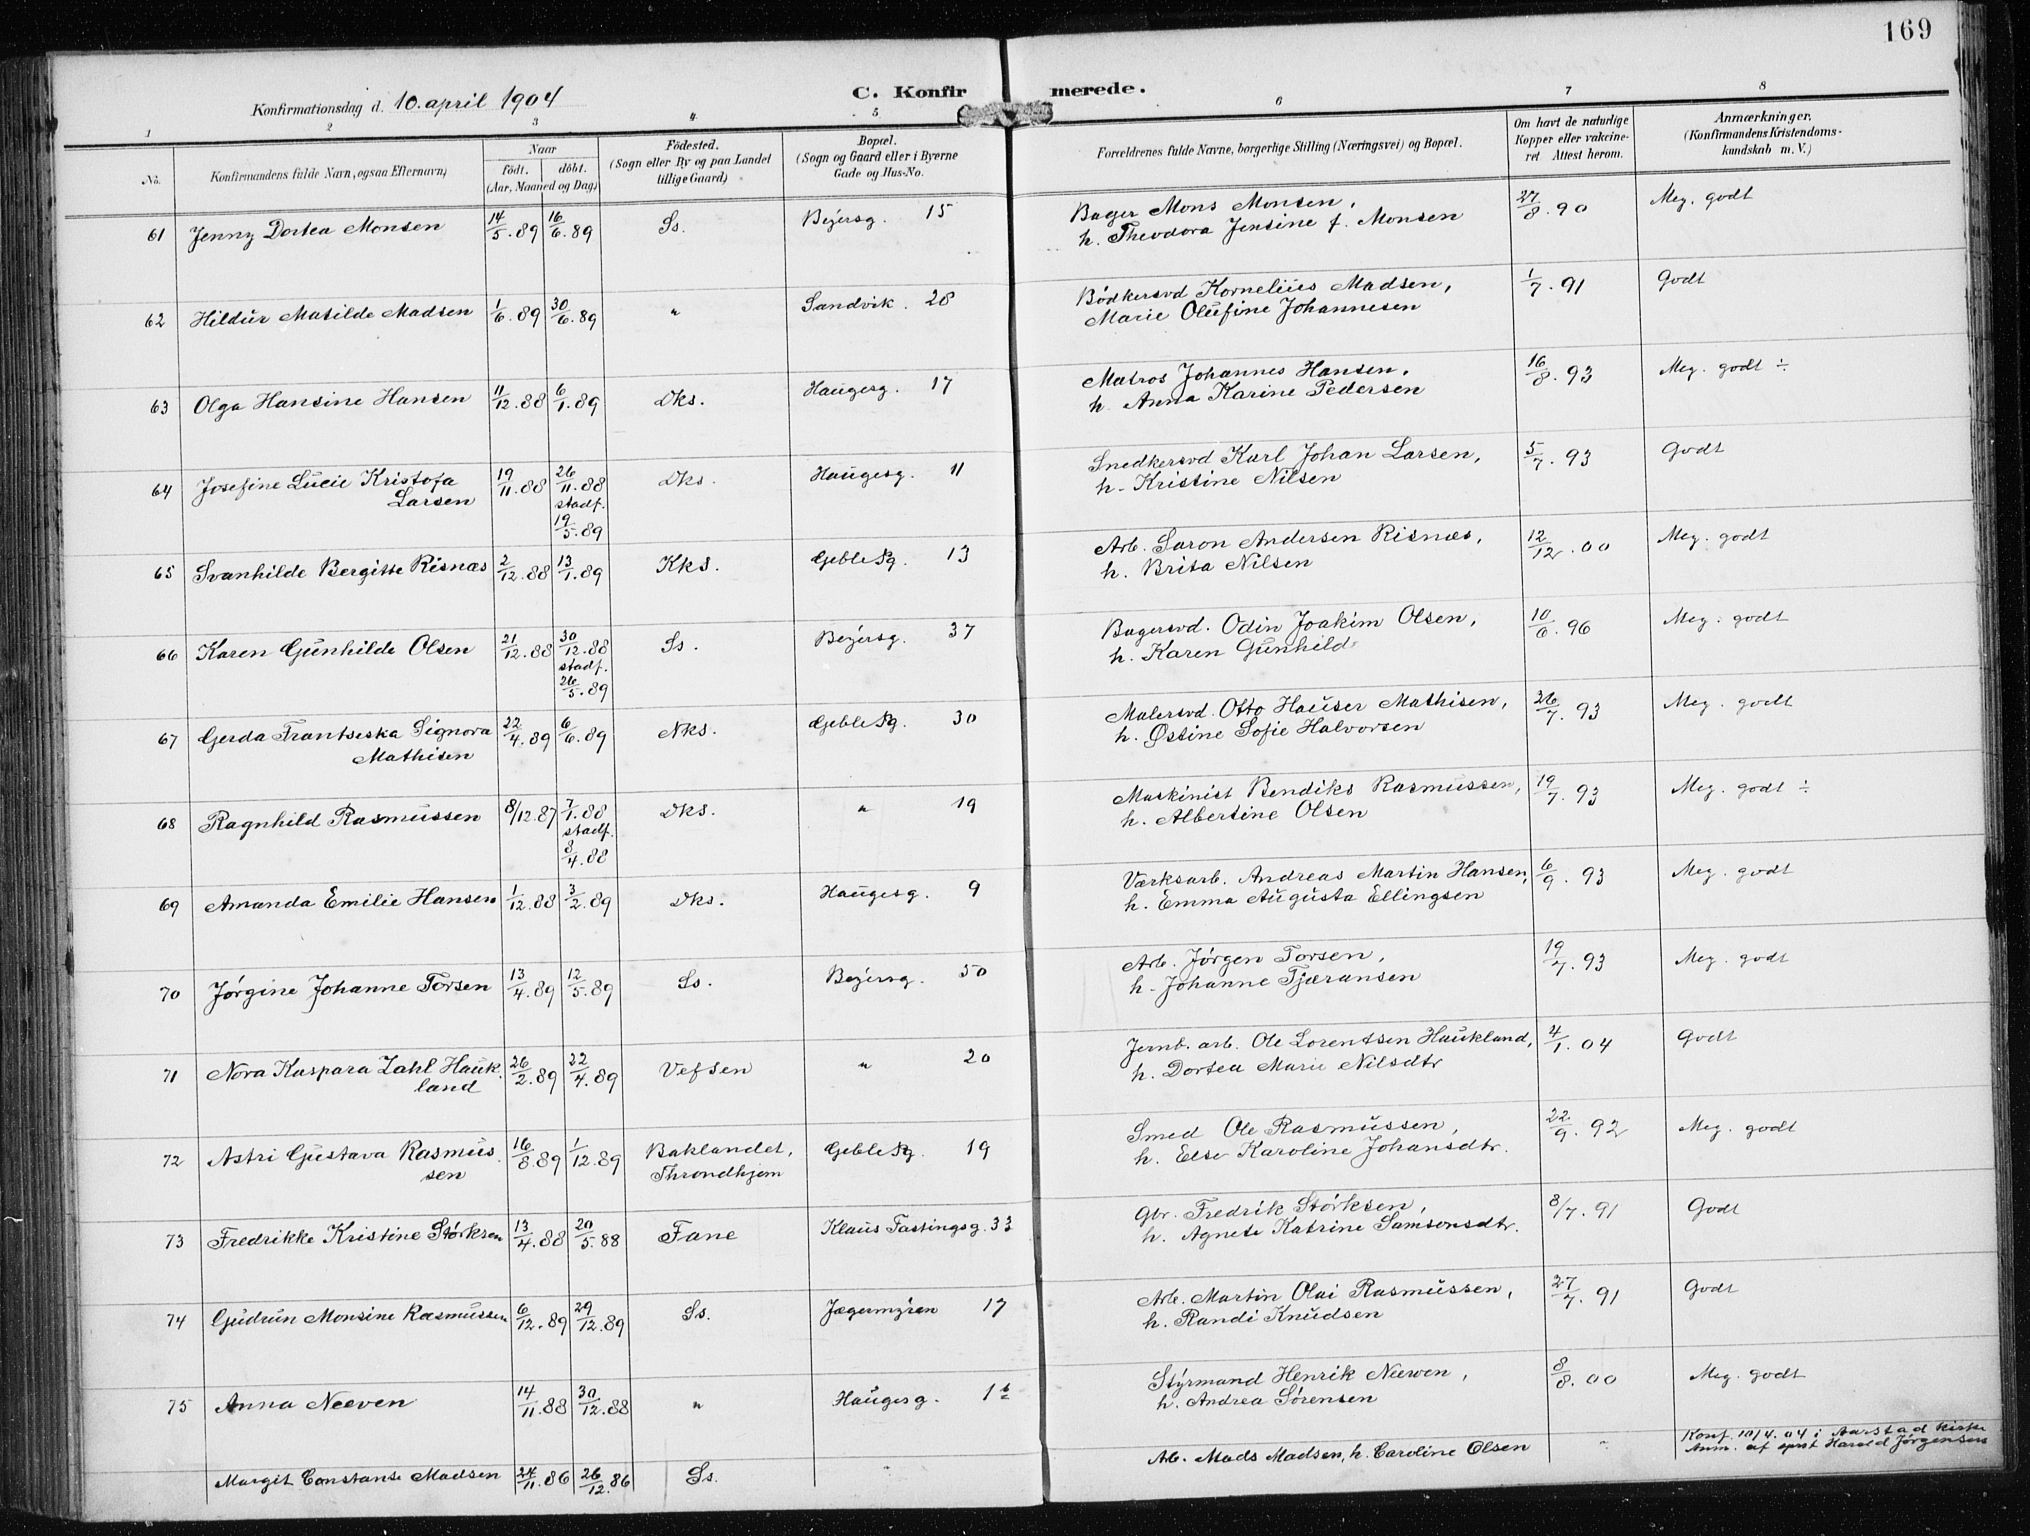 169
Konfirmationsdag d. 10. april 1904
C. Konfirmerede.
1 2 3 4 5 6 7 8
No.
Konfirmandens fulde Navn, ogsaa Efternavn.
Naar
födt. döbt.
(Aar, Maaned og Dag)
Födested.
(Sogn eller By og paa Landet
tillige Gaard)
Bopæl.
(Sogn og Gaard eller i Byerne
Gade og Hus-No.
Forældrenes fulde Navne, borgerlige Stilling (Næringsvei) og Bopæl.
Om havt de naturlige
Kopper eller vakcine-
ret Attest herom.
Anmærkninger,
(Konfirmandens Kristendoms-
kundskab m. V.)
61 Jenny Dortea Monsen 14/5.89 16/6.89 Ss. Beyersg. 15 Bager Mons Monsen, 27/8.90 Meg. godt
h. Theodora Jensine f. Monsen
62 Hildur Matilde Madsen 1/6.89 30/6.89 " Sandvik. 28 Bödkersvd Kornelius Madsen, 1/7.91 Godt
Marie Olufine Johannesen
63 Olga Hansine Hansen 11/12.88 6/1.89 Dks. Haugesg. 17 Matros Johannes Hansen, 16/8.93 Meg. godt ÷
h. Anna Karine Pedersen
64 Josefine Lucie Kristofa 19/11.88 26/11.88 Dks. Haugesg. 11 Snedkersvd Karl Johan Larsen, 5/7.93 Godt
Larsen stadf. 19/5.89 h. Kristine Nilsen
65 Svanhilde Bergitte Risnæs 2/12.88 13/1.89 Kks. Geble Pg. 13 Arb. Saron Andersen Risnæs, 12/12.00 Meg. godt
h. Brita Nilsen
66 Karen Gunhilde Olsen 21/12.88 30/12.88 Ss. Beyersg. 37 Bagersvd. Odin Joakim Olsen, 10/6.96 Meg. godt
stadf. 26/5.89 h. Karen Gunhild
67 Gerda Frantseska Signora 22/4.89 6/6.89 Nks. Geble Pg. 30 Malersvd. Otto Hauser Mathisen, 26/7.93 Meg. godt
Mathisen h. Østine Sofie Halvorsen
68 Ragnhild Rasmussen 8/12.87 7/1.88 Dks. " 19 Maskinist Bendiks Rasmussen, 19/7.93 Meg. godt ÷
stadf. 8/4.88 h. Albertine Olsen
69 Amanda Emilie Hansen 1/12.88 3/2.89 Dks. Haugesg. 9 Værksarb. Andreas Martin Hansen, 6/9.93 Meg. godt
h. Emma Augusta Ellingsen
70 Jørgine Johanne Torsen 13/4.89 12/5.89 Ss. Beyersg. 50 Arb. Jørgen Torsen, 19/7.93 Meg. godt
h. Johanne Tjæransen
71 Nora Kaspara Zahl Hauk- 26/2.89 22/4.89 Vefsen " 20 Jernb. arb. Ole Lorentsen Haukland, 4/1.04 Godt
land h. Dortea Marie Nilsdtr
72 Astri Gustava Rasmus 16/8.89 1/12.89 Baklandet, Geble Pg. 19 Smed Ole Rasmussen, 22/9.92 Meg. godt
sen Throndhjem h. Else Karoline Johansdtr.
73 Fredrikke Kristine Størksen 13/4.88 20/5.88 Fane Klaus Fastingsg. 33 Gbr. Fredrik Størksen, 8/7.91 Godt
h. Agnete Katrine Samsonsdtr.
74 Gudrun Monsine Rasmussen 6/12.89 29/12.89 Ss. Jægermyren 17 Arb. Martin Olai Rasmussen, 27/7.91 Godt
h. Randi Knudsen
75 Anna Neeven 14/11.88 30/12.88 " Haugesg. Styrmand Henrik Neeven, 8/8.00 Meg. godt
h. Andrea Sørensen
Margit Constanse Madsen 24/11.86 26/12.86 Ss. " Arb. Mads Madsen, h. Caroline Olsen " Konf. 10/4.04 i Aarstad kirke
Anm. af spst Harald Jørgensen